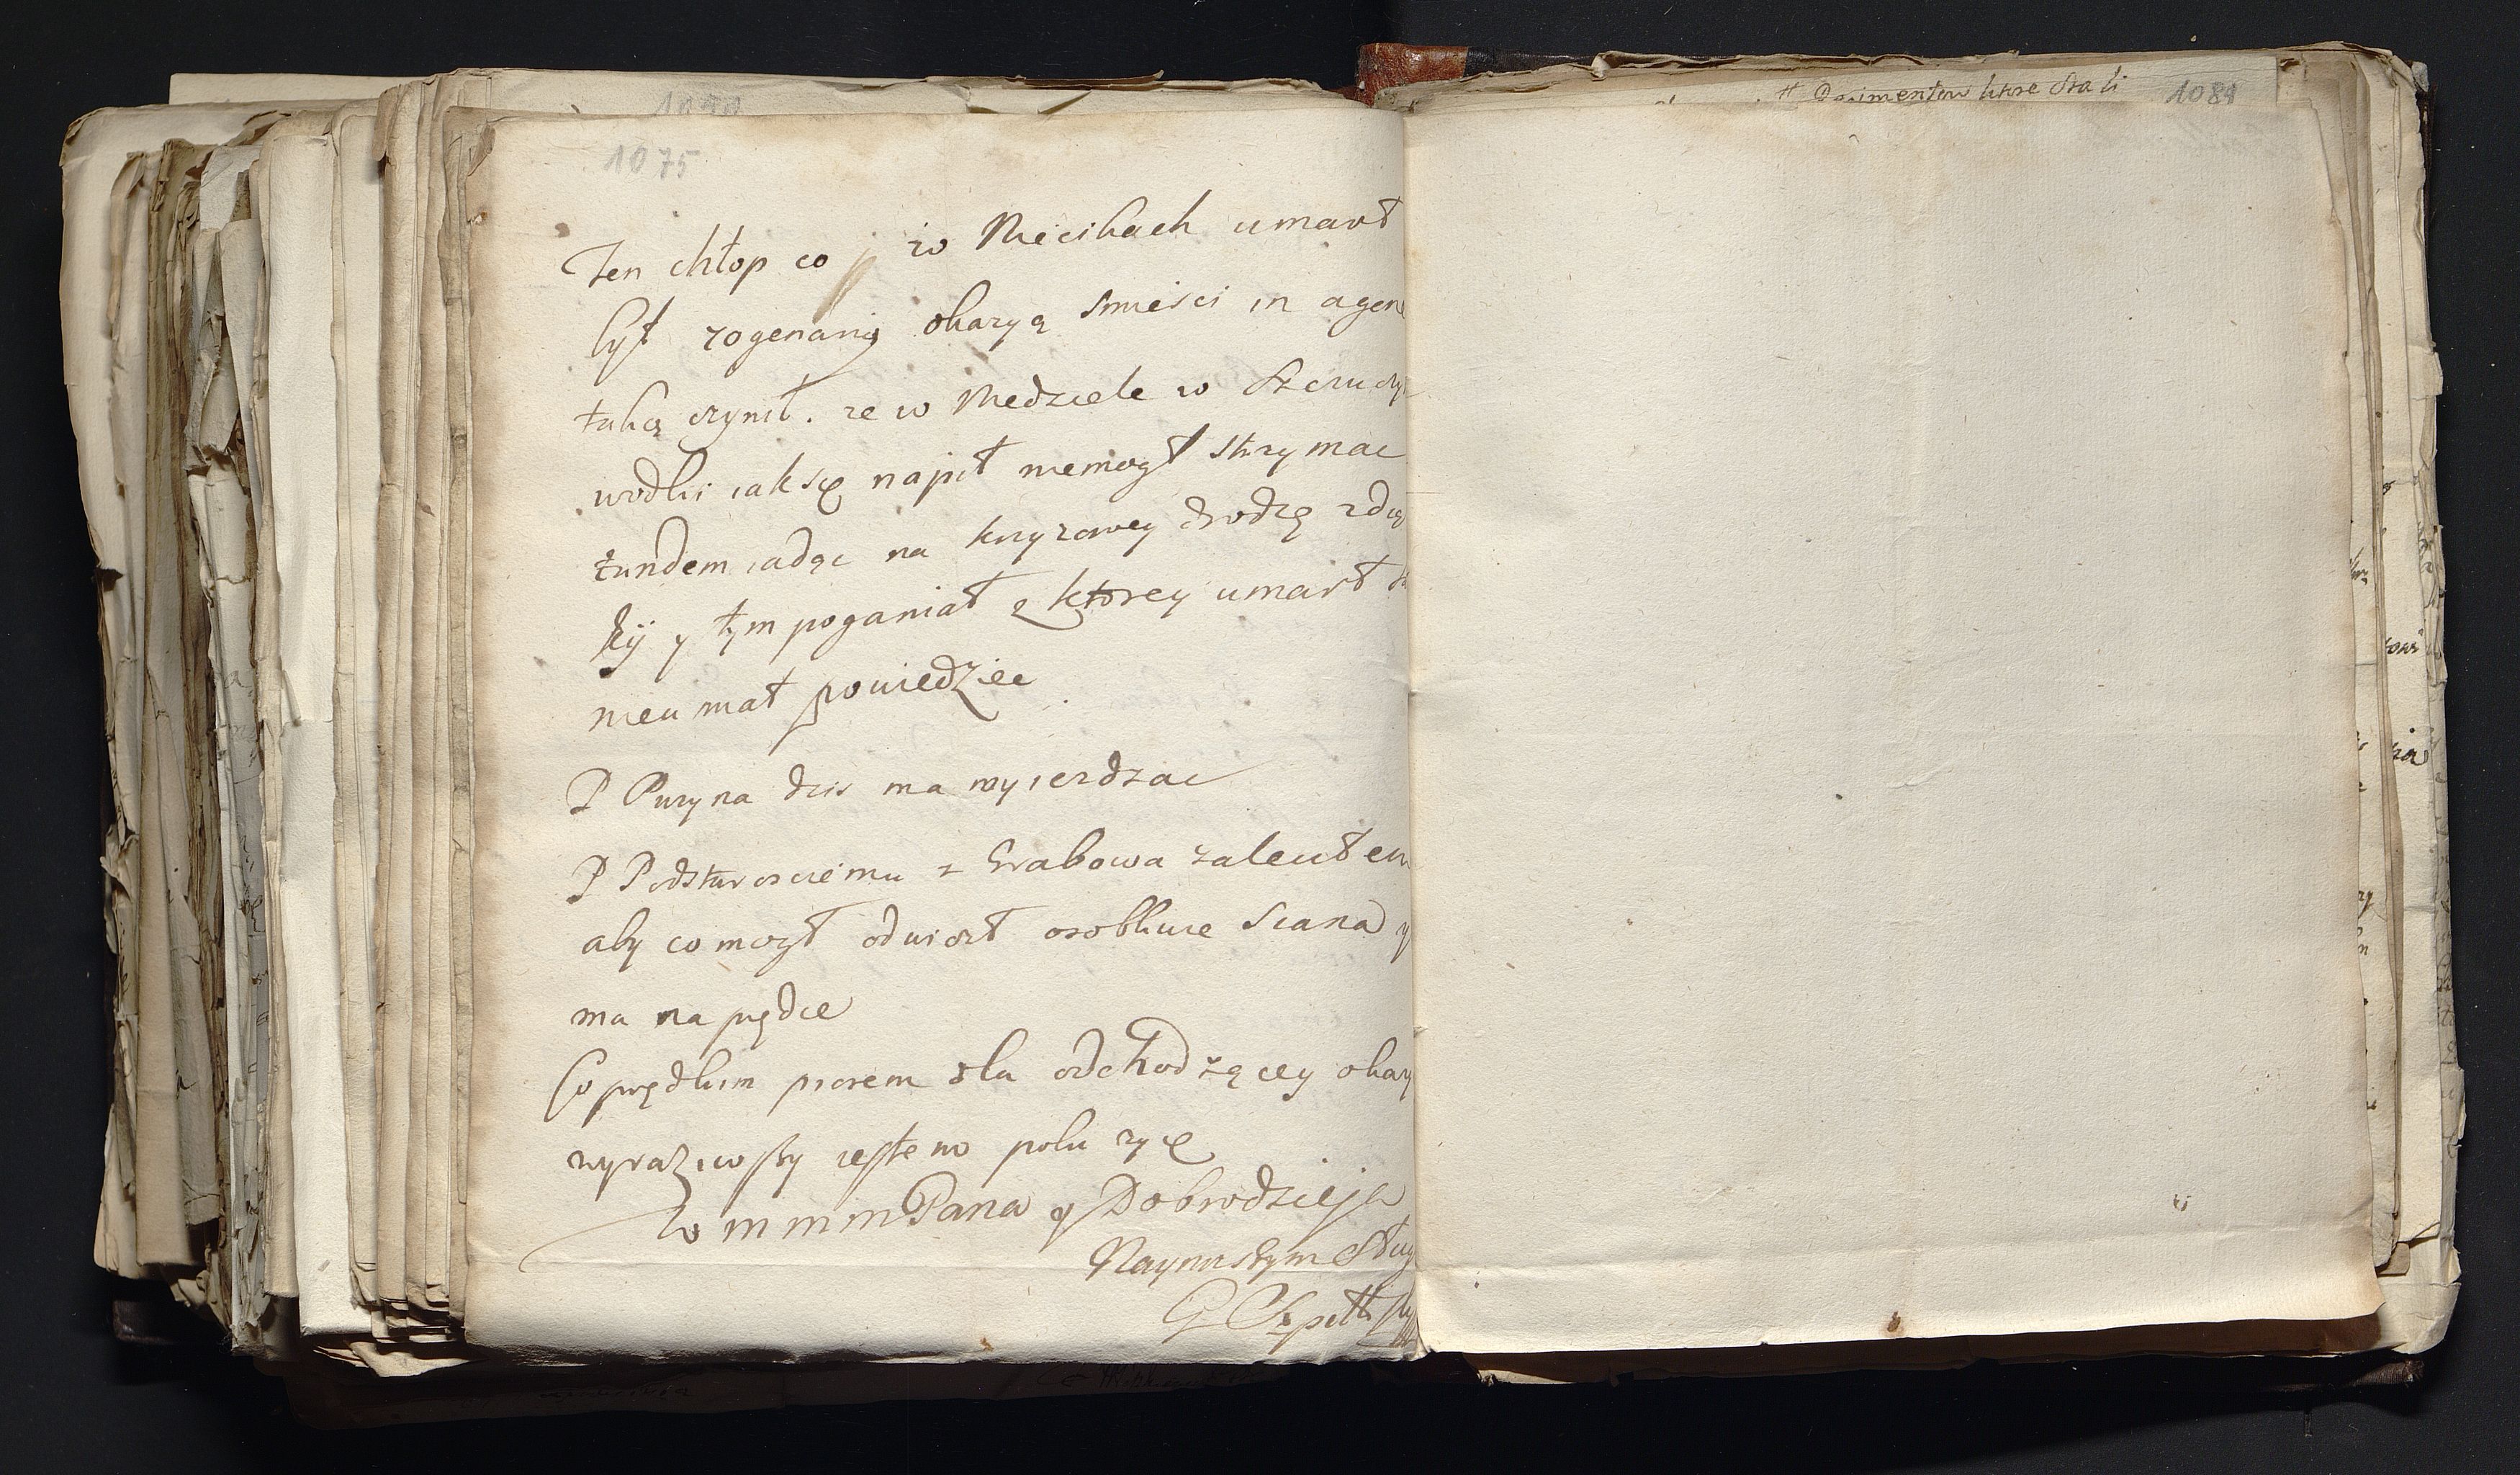 1075
Ten chłop co w Niecikach umarł
był okazyą smieści in agen
taką czynił. ze w Niedziele w Szczuczy
wodki iak się napił niemogł strzymac
iadąc na krzyzowey drodzę
kij y tym poganiał z ktorey umarł
nieumiał powiedziec
P Puzyna dzis ma wyierdzac
P Podstarosciemu z Grabowa zalecił em
aby co mogł odwiozł osobliwie Siana y
ma na prędce
Co prędkim piorem dla odchodzącey okazy
wyraziwszy iestem po
W m m m Pana y Dobrodzieja
Nayniszym Sług
G Szpilk
1084
Regimentow ktore stali